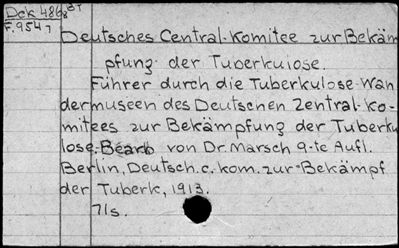 Dck 486 8 BT
F. 9547
Deutsches Central-Komitee zur Bekäm
pfung der Tuberkulose.
Führer durch die Tuberkulose-Wan
dermuseen des Deutschen Zentral-Ko-
mitees zur Bekämpfung der Tuberku
lose. Bearb von Dr. Marsch 9-te Aufl.
Berlin, Deutsch. c. kom. zur Bekämpf
der Tuberk, 1913.
71s.